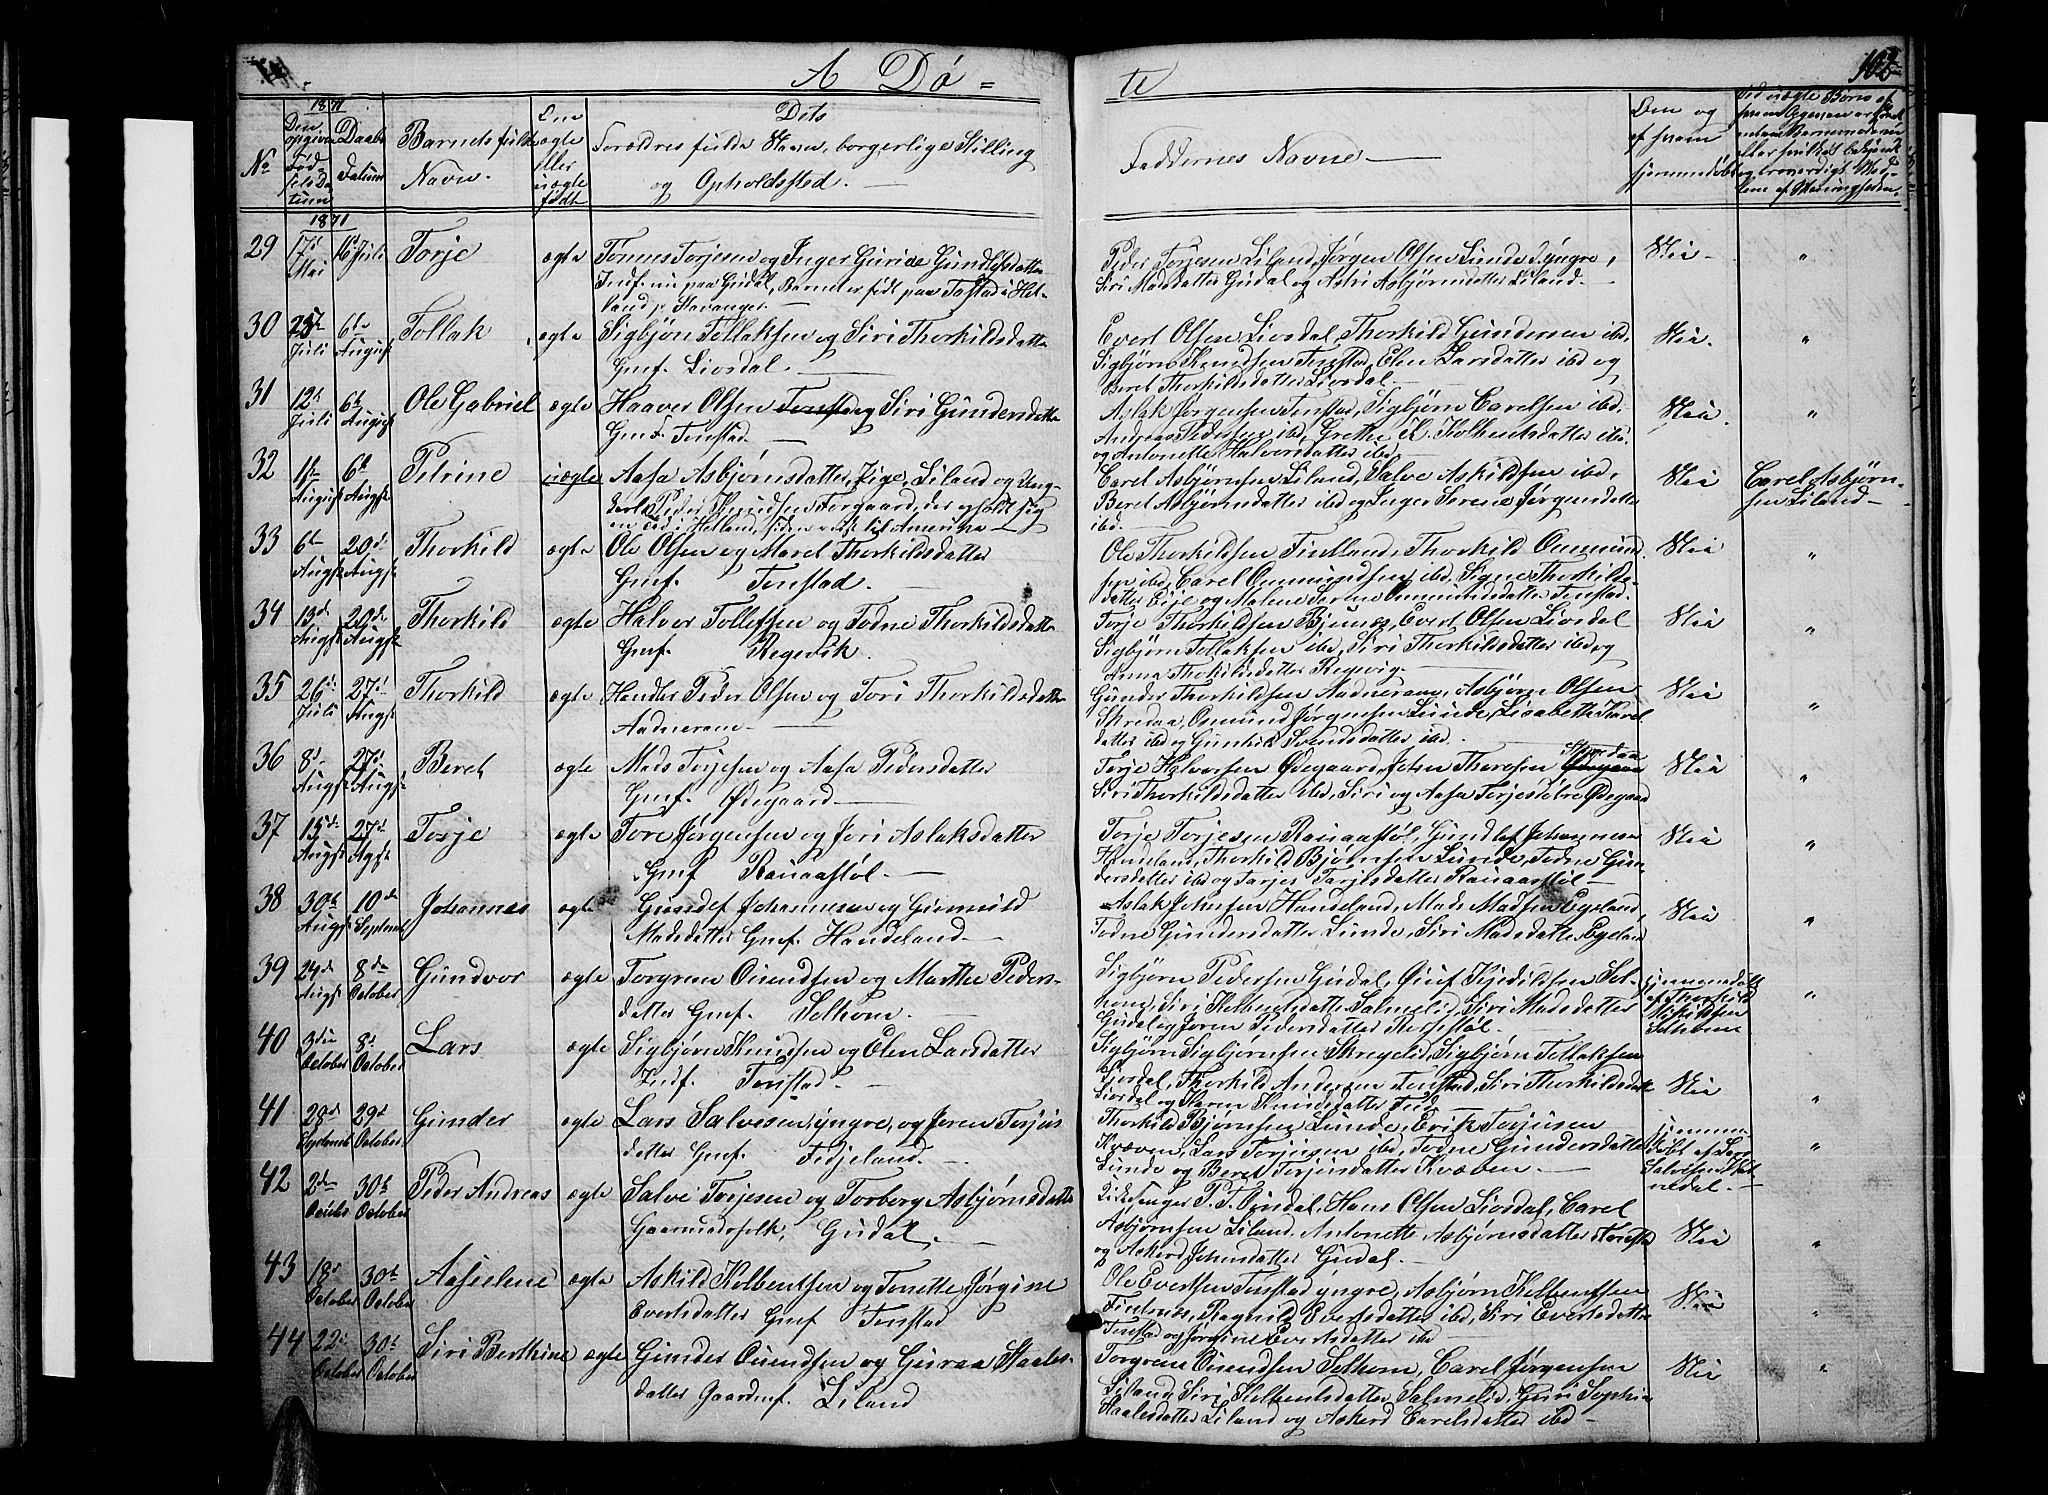 A Dø = te
1871
No
Den opgivne Fødselsdatum
Daabs Datum
Barnets fulde Navn.
Om ægte eller uægte født
Dets
Forældres fulde Navn, borgerlige Stilling
og Opholdssted.
Faddernes Navne
Om og af hvem hjemmedøbt
1871
29 17d Mai 16d Juli Torje ægte
Tønnes Torjesen og Inger Guride Gundlefsdatter
Indf. nu paa Gudal, Barnet er født paa Tostad i Hetland p. Stavanger
Peder Torjesen Liland, Jørgen Olsen Lunde yngre,
Siri Madsdatter Gudal og Astri Asbjørnsdatter Liland
Nei "
30 25de Juli 6te August Tollak ægte
Sigbjørn Tollaksen og Siri Thorkildsdatter
Gmf. Liosdal
Evert Olsen Liosdal, Thorkild Gundersen ibd,
Sigbjørn Knudsen Tonstad, Elen Larsdatter ibd og
Beret Thorkildsdatter Liosdal
Nei. "
31 12te Juli 6te August Ole Gabriel ægte
Haaver Olsen Tonstad og Siri Gundersdatter
Gmf. Tonstad
Aslak Jørgensen Tonstad, Sigbjørn Carelsen ibd,
Andreas Pedersen ibd, Grethe K. Kolbentsdatter ibd,
og Antonette Halvorsdatter ibd
Nei "
32 1te August 6te Augst Petrine uægte
Aasa Asbjørnsdatter, Pige, Liland og Ungkarl Peder Knudsen Forgaard, der opholdt sig
en Tid i Helland, siden reist til Amerika
Carel Asbjørnsen Liland, Salve Askildsen ibd,
Beret Asbjørnsdatter ibd og Inger Serene Jørgensdatter
ibd
Nei Carel Asbjørnsen Liland
33 6te Augst 20de Augst Thorkild ægte
Ole Olsen og Maret Thorkildsdatter
Gmf. Tonstad
Ole Thorkildsen Fintland, Thorkild Ommundsen ibd, Carel Ommundsen ibd, Signe Thorkildsdatter Eije og Malene Serene Ommundsdatter Tonstad.
Nei "
34 13de Augst 20de Augst Thorkild ægte
Halvor Tollefsen og Todne Thorkildsdatter
Gmf. Regevik.
Torje Thorkildsen Bjunes, Evert Olsen Liosdal
Sigbjørn Tollaksen ibd, Siri Thorkildsdatter ibd og
Anna Thorkildsdatter Regevig
Nei "
35 26de Juli 27de Augst Thorkild ægte
Handler Peder Olsen og Tori Thorkildsdatter
Aadneram
Gunder Thorkildsen Aadneram, Asbjørn Olsen
Skredaa, Osmund Jørgensen Lunde, Lisabetta Kareldatter ibd og Gunhild Svendsdatter ibd.
Nei "
36 8de Augst 27de Augst Beret ægte
Mads Torjesen og Aasa Pedersdatter
Gmf. Ødegaard
Torje Halversen Ødegaard, John Thoresen Skredaa
Siri Thorkildsdatter ibd, Siri og Aasa Torjesdøtre Ødegaard
Nei "
37 15de Augst 27de Agst Torje ægte
Tore Jørgensen og Jori Aslaksdatter
Gmf Rauaastøl
Torje Torjesen Rauaastøl, Gundlef Johannesen
Handeland, Thorkild Bjørnsen Lunde, Todne Gundersdatter ibd og Tarjer Tarjesdatter Rauaastøl
Nei "
38 30te Augst 10de Septemb Johannes ægte
Gundlef Johannesen og Gunvald
Madsdatter Gmf. Handeland
Aslak Johnsen Handeland, Mads Madsen Egeland,
Todne Gundersdatter Lunde, Siri Madsdatter Egeland
Nei "
39 24de Augst 8de October Gundvor ægte
Torgrem Ouendsen og Marthe Pedersdatter Gmf. Selhom.
Sigbjørn Pedersen Gudal, Ouf Kjedilsen Selhom, Siri Kolbentsdatter Salmeli, Siri Madsdatter
Gudal og Joren Pedersdatter
hjemmedøbt af Thorkild Selhom "
40 3die October 8de October Lars ægte
Sigbjørn Knudsen og Elen Larsdatter
Indf. Tonstad.
Sigbjørn Sigbjørnsen Skregelid, Sigbjørn Tollaksen
Liosdal, Thorkild Andersen Tonstad, Siri Thorkildsdatter
Liosdal og Karen Knudsdatter
Nei "
41 28de Septemb 29de October Gunder ægte
Lars Salvesen, yngre, og Joren Torjusdatter Gmf. Fidjeland.
Thorkild Bjørnsen Lunde, Erik Torjusen
Kvæven, Lars Torjusen ibd, Todne Gundersdatter
Lunde og Beret Torjusdatter Kvæven
hjemmedøbt af Lars Salvesen "
42 2den October 30te October Peder Andreas ægte
Salve Torjesen og Torborg Asbjørnsdatter
Gaardmandsfolk, Gudal.
Kirkesanger P. T. Ousdal, Hans Olsen Liosdal, Carel
Asbjørnsen Liland, Antonette Asbjørnsdatter
og Askerd Johnsdatter Gudal.
Nei "
43 18de October 30te October Aaselene ægte
Askild Kolbentsen og Tonette Jørgine
Evertsdatter Gmf Tonstad
Ole Evertsen Tonstad yngre, Asbjørn Kolbentsen
Ragnild Evertsdatter ibd, Siri Evertsdatter
Tonstad og Jørgine Evertsdatter ibd
Nei "
44 22de October 30te October Siri Berthine ægte
Gunder Ouendsen og Guraa Staalesdatter Gaardmf. Liland
Torgrem Ouendsen Selhom, Carel Jørgensen
Liland, Siri Kolbentsdatter Salmelid, Guri Sophie
Staalesdatter Liland og Askerd Carelsdatter ibd
Nei "